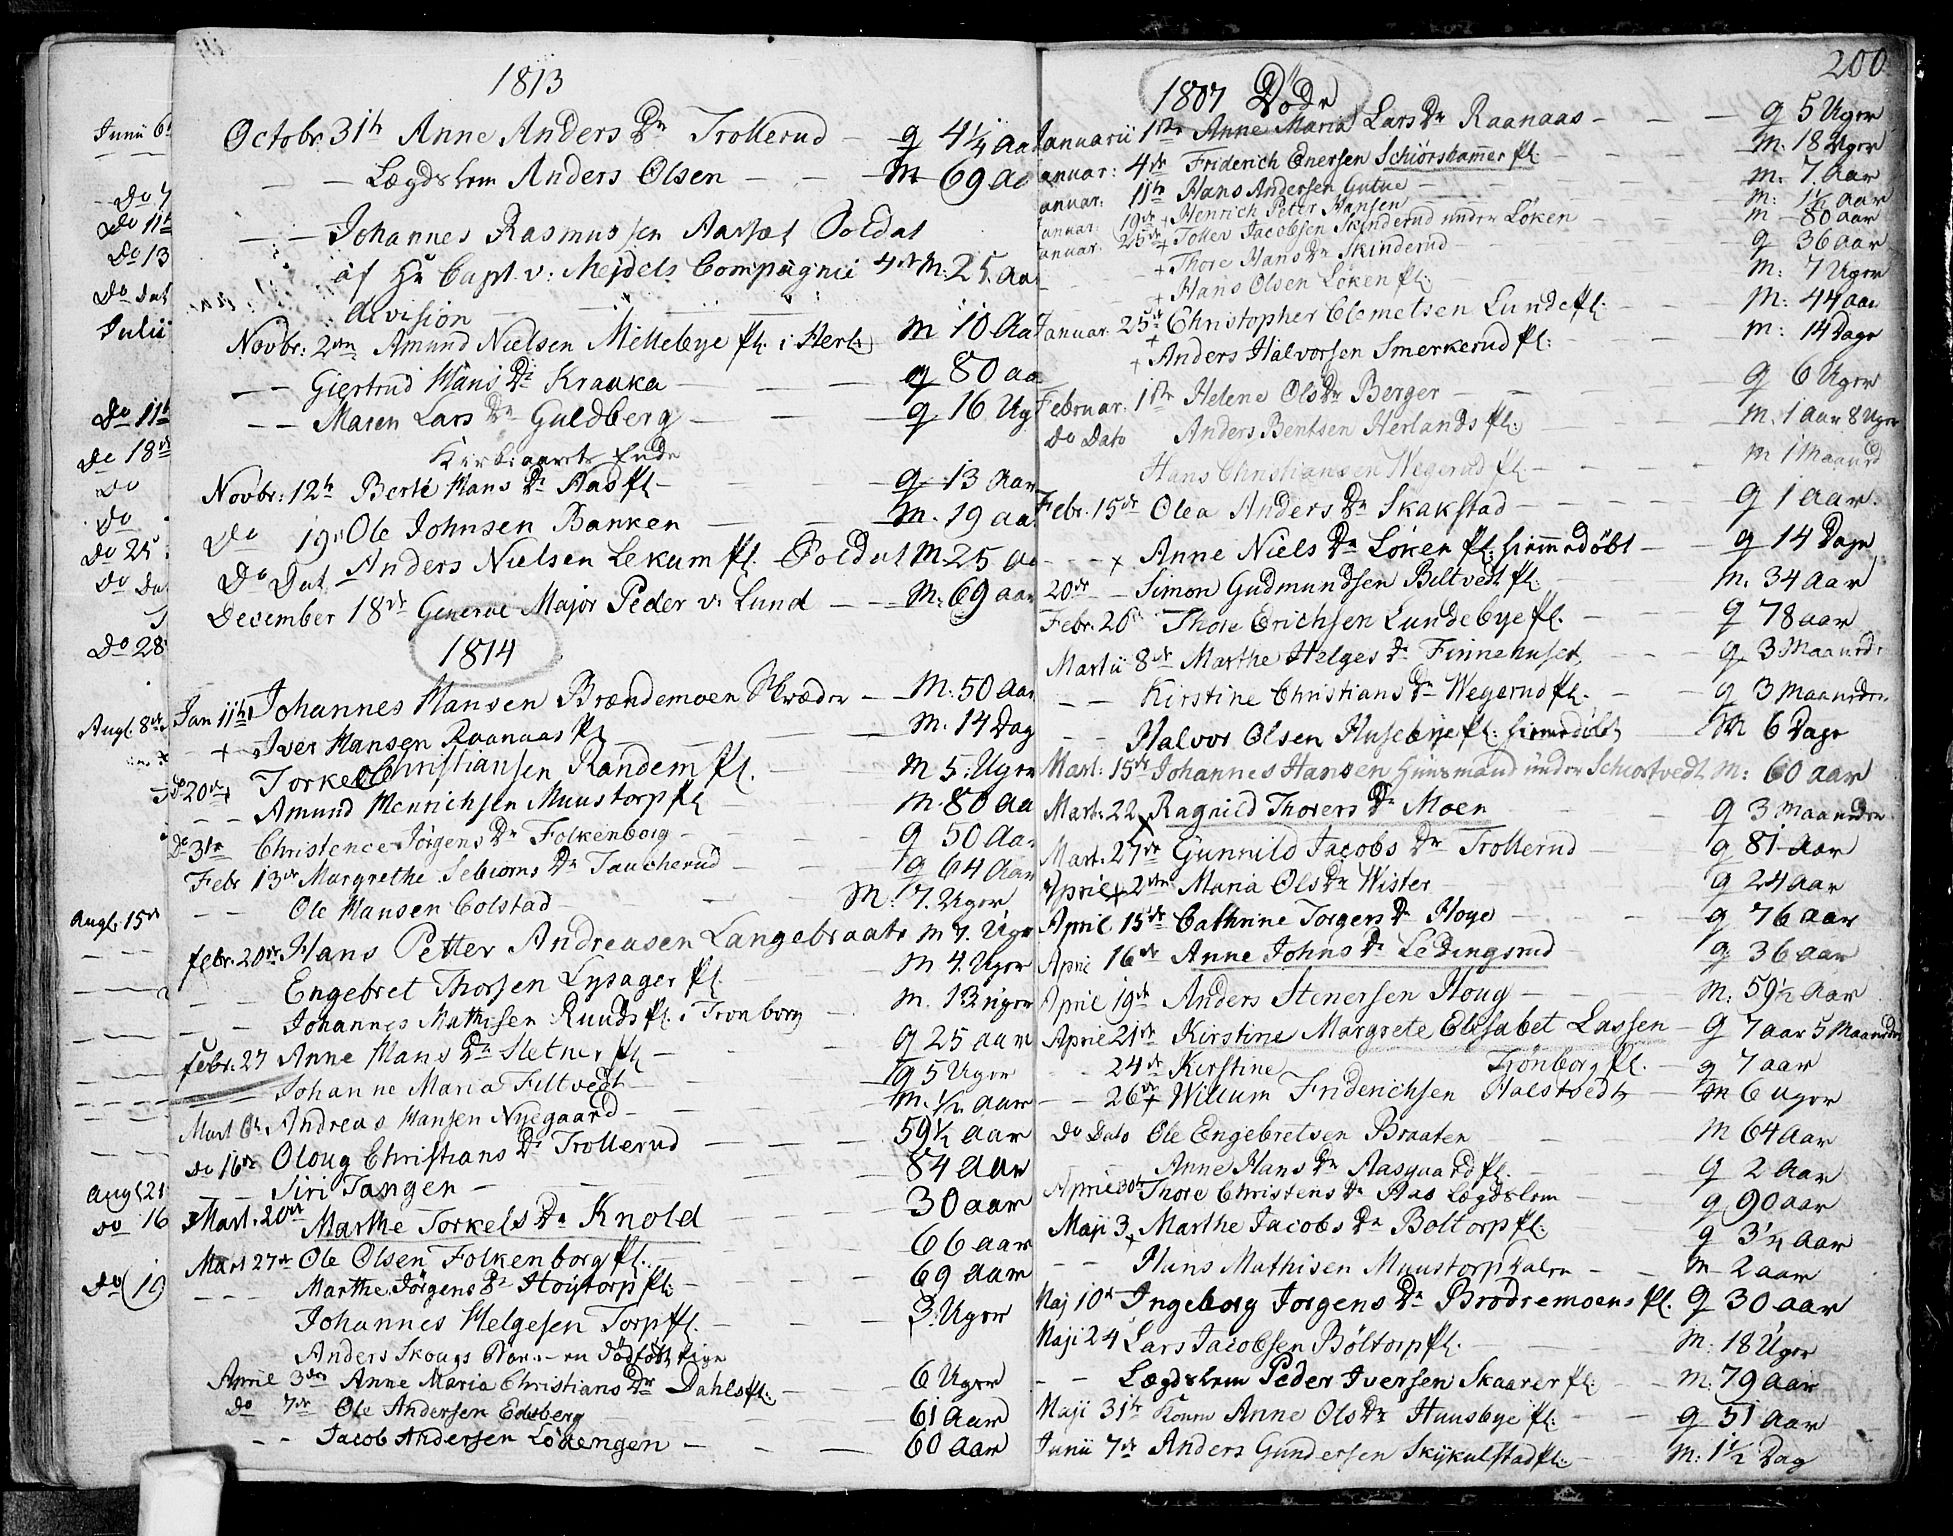 Junii 6
Do 7
Do 11te
Do 13
Do Dat
Julii
Do 11t
Do 18de
Do
Do
Do 25
Do Da
Do 28
Augl. 8de
Augl. 15de
Augl 21
Do 16
Do 19
1813
Octobr. 31te Anne Anders Dr Trollerud - q 4 1/4 aa
- - Lægdslem Anders Olsen - - - M 69 Aa
- - Johannes Rasmussen Aasset Soldat
af Hr Capt. v: Mejdels Compagnie 4de M: 25 Aa
division
Novbr: 2den Amund Nielsen Millebye Pl. i Herl: M 10 Aa
- - Giertrud Hans Dr Kraaka - - - q 80 aa
- - Maren Lars Dr Guldberg - - - q. 16 Ug
Kirke aarets Ende
Novbr: 12te Berte Hans Dr Aas pl - - q 13 Aar
Do 19de Ole Johnsen Banken - - M. 19 aa
Do Dat Anders Nielsen Lekum Pl. Soldat M 25 Aa
December 18de General Major Peder v. Lund - - M: 69 aar
1814
Jan 11te Johannes Hansen Brændemoen Skræder - M. 50 Aar
+ Iver Hansen Raanaas Pl - - - M. 14 Dag
Do 20de + Torkel Christiansen Randem Pl. - - M 5. Uger
- - Amund Henrichsen Muustorp Pl - - M. 80 aa
Do 31te Christence Jørgens Dr Folkenborg - - q 50 Aar
Febr 13de Margrethe Sebiørns Dr Taucherud - - q 64 Aar
- - Ole Hansen Colstad - - - M: 7. Uger
febr. 20de Hans Petter Andreasen Langebraate M 7. Uger
- - Engebret Thorsen Lysager Pl. - - M 4. Uger
- - Johannes Mathisen Ruuds Pl. i Tronborg - M. 13 uger
febr. 27 Anne Hans Dr Sletner Pl - - - q 25 aar
Johanne Maria Filtvedt - - - q 5 Uger
Mart 6te Andreas Hansen Nyegaard - - - M. 1/2 aar
Do 16de Oloug Christians Dr Trollerud - - - 59 1/2 aar
- - Siri Tangen - - - 84 aar
Mart. 20de Marthe Torkels Dr Knold - - - 30 aar
Mart 27de Ole Olsen Folkenborg Pl. - - 66 aar
- - - Marthe Jørgens Dr Høystorp Pl: - - 69 aar
Johannes Helgesen Torp Pl. - - - 3. Uger
Anders Skougs Barn - en Dødfødt Pige
April 3den Anne Maria Christians Dr Dahls Pl: - - 6 Uger
Do 7de Ole Andersen Edsberg - - 61 Aar
- - Jacob Andersen Løkengen - - - 60 aar
200
1807 Døde
Januarii 1ste Anne Maria Lars Dr Raanaas - - - q 5 Uger
Januar: 4de Friderich Enersen Schiørshammer Pl - - - M. 18 Uger
Januar: 11te Hans Andersen Gutue - - - M. 7 Aar
Januar: 19de + Henrich Peter Hansen - - - M: 1 1/2 aar
Januar: 25de + Tollev Jacobsen Skinderud under Løken - M - 80 aar
+ Thore Hans Dr Skinderud - - - q 36 aar
+ Hans Olsen Løken Pl. - - - M: 7 Uger
Januar: 25de Christopher Clemetsen Lunde Pl: - - M: 44 aar
+ Anders Halvorsen Smerkerud Pl: - - - M: 14 Dage
Februar. 1ste Helene Ols Dr Berger - - - q 6 Uger
Do Dato Anders Bentsen Herlands Pl: - - - M. 1 Aar 8 Uger
Hans Christiansen Wegerud Pl - - - M 1 Maaned
Febr. 15de Olea Anders Dr Skakstad - - - q 1 aar
- - + Anne Niels Dr Løken Pl: hiemmedøbt - - q 14 Dage
20de - Simon Gudmundsen Biltvedt Pl: - - M: 34 Aar
Febr. 26de Thore Erichsen Lundebye Pl. - - q 78 aar
Martii 8de Marthe Helges Dr Finnehuset - - - q. 3 Maaneder
- - Kirstine Christians Dr Wegerud Pl. - - q 3 Maaneder
- - Halvor Olsen Husebye Pl: hiemedøbt - M 6 Dage
Mart: 15de Johannes Hansen Huusmand under Schiortvedt M: 60 aar
Mart: 22 Ragnild Thorers Dr Moen - q 3 Maaneder
Mart. 27de Gunnild Jacobs Dr Trollerud - - q 81 Aar
April 2den Maria Ols Dr Wister - - q 24 Aar
April 15de Cathrine Torgers Dr Hoye - - q 76 aar
April 16de Anne Johns Dr Ledingsrud - - q. 36 aar
April 19de Anders Stenersen Houg - - M: 59 1/2 Aar
April 21de Kirstine Margrete Elisabet Lassen - q 7 aar 5 Maaneder
- - 24de Kirstine Trønborg Pl. - q 7 aar
- - 26de + Willum Friderichsen Halstvedt - M 6 uger
Do Dato Ole Engebretsen Braaten - - M 64 Aar
Anne Hans Dr Aasgaard Pl. - - q 2 Aar
April 30te Thore Christens Dr Aas Lægdslem - q 90 aar
Maji 3 + Marthe Jacobs Dr Boltorp Pl: - - q 3/4 Aar
- - Hans Mathisen Muustorp Dalen - - M - 2 aar
Maj 10de Ingeborg Jorgens Dr Brødremoens Pl. q 30 aar
Maji 24 Lars Jacobsen Bøltorp Pl. - - M: 18 Uger
- - Lægdslem Peder Iversen Skaarer Pl: - M: 79 Aar
Maji 31te Konen Anne Ols Dr Huusbye Pl: - - q 51 Aar
Junii 7de Anders Gundersen Skykulstad Pl: - - M: 1 1/2 Dag